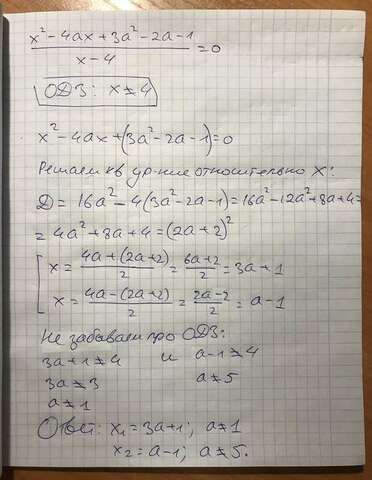 (x²-4ax+3a²-2a-1)/(x-4)=0
ОДЗ: x≠4
x²-4ax+(3a²-2a-1)=0
Решаем кв ур-ние относительно x:
D=16a²-4(3a²-2a-1)=16a²-12a²+8a+4=
=4a²+8a+4=(2a+2)²
[ x=(4a+(2a+2))/2=(6a+2)/2=3a+1
x=(4a-(2a+2))/2=(2a-2)/2=a-1
Не забываем про ОДЗ:
3a+1≠4 и a-1≠4
3a≠3 a≠5
a≠1
Ответ: x₁=3a+1; a≠1
x₂=a-1; a≠5.